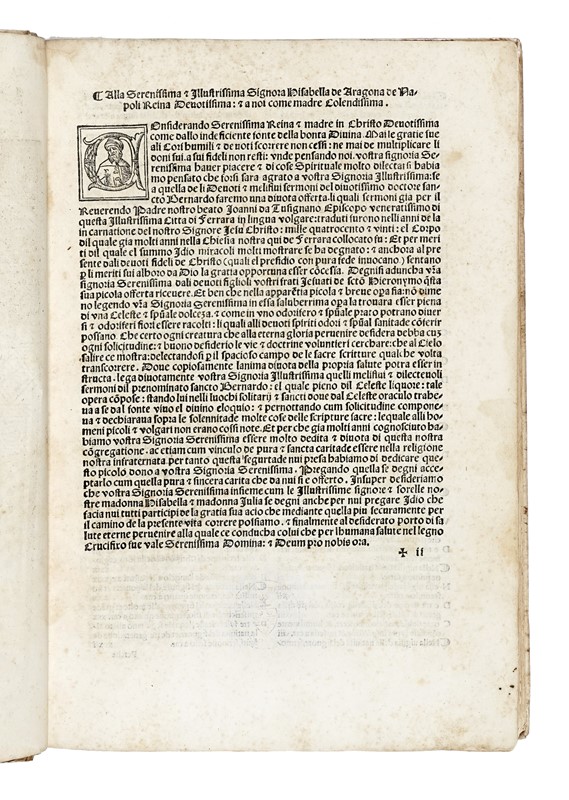 ℄ Alla Serenissima ⁊ Illustrissima Signora Hisabella de Aragona de Na-
poli Reina Deuotissima: ⁊ a noi come madre Colendissima.
COnsiderando Serenissima Reina ⁊ madre in Christo Deuotissima
come dallo indeficiente fonte della bonta Diuina. Mai le gratie sue
ali Cori humili ⁊ deuoti scorrere non cessi: ne mai de multiplicare li
doni sui. a sui fideli non resti: vnde pensando noi. vostra signoria Se-
renissima hauer piacere ⁊ di cose Spirituale molto dilectarsi habia
mo pensato che forsi sara agrato a vostra Signoria Illustrissima: se
a quella de li Deuoti ⁊ melisui sermoni del diuotissimo doctore san-
cto Bernardo faremo una diuota offerta. li quali sermoni gia per il
Reuerendo Padre nostro beato Joanni da Tusignano Episcopo veneratissimo di
questa Illustrissima Citta di Ferrara in lingua volgare: traduti furono nelli anni de la
in carnatione del nostro Signore Jesu Christo: mille quatrocento ⁊ vinti: el Corpo
dil quale gia molti anni nella Chiesia nostra qui de Ferrara collocato fu: Et per meri
ti dil quale el summo Idio miracoli molti mostrare se ha degnato: ⁊ anchora al pre
sente dali deuoti fideli de Christo (quali el presidio con pura fede inuocano) sentano
p li meriti sui alhoro da Dio la gratia opportuna esser cōcessa. Degnisi aduncha vr̄a
signoria Serenissima dali deuoti figlioli vostri frati Jesuati de sctō Hieronymo q̄sta
sua picola offerta riceuere. Et ben che nella apparētia picola ⁊ breue opa sia: nō dime
no legendo vr̄a Signoria Serenissima in essa saluberrima opa la trouara esser piena
di vna Celeste ⁊ spūale dolceza. ⁊ come in vno odorifero ⁊ spūale prato potrano diuer
si ⁊ odoriferi fiori essere racolti: li quali alli deuoti spiriti odori ⁊ spūal sanitade cōferir
possano. Che certo ogni creatura che alla eterna gloria peruenire desidera debba cū
ogni solicitudine: ⁊ buono desiderio le vie ⁊ doctrine voluntieri cerchare: che al Cielo
salire ce mostra: delectandosi p il spacioso campo de le sacre scritture qualche volta
transcorrere. Doue copiosamente lanima diuota della propria salute potra esser in
structa. lega diuotamente vostra Signoria Illustrissima quelli melisui ⁊ dilecteuoli
sermoni dil prenominato sancto Bernardo: el quale pieno dil Celeste liquore: tale
opera cōpose: stando lui nelli luochi solitarij ⁊ sancti doue dal Celeste oraculo trahe-
ua a se dal fonte viuo el diuino eloquio: ⁊ pernottando cum solicitudine compone-
ua ⁊ dechiaraua sopra le solennitade molte cose delle scripture sacre: lequale alli ho-
meni picoli ⁊ volgari non erano cossi note. Et per che gia molti anni cognosciuto ha-
biamo vostra Signoria Serenissima essere molto dedita ⁊ diuota di questa nostra
cōgregatione. ac etiam cum vinculo de pura ⁊ sancta caritade essere nella religione
nostra infraternata per tanto questa segurtade nui presa habiamo di dedicare que-
sto picolo dono a vostra Signoria Serenissima. Pregando quella se degni acce-
ptarlo cum quella pura ⁊ sincera carita che da nui si e offerto. Insuper desideriamo
che vostra Signoria Serenissima insieme cum le Illustrissime signore ⁊ sorelle no-
stre madonna Hisabella ⁊ madonna Julia se degni anche per nui pregare Idio che
facia nui tutti participi de la gratia sua acio che mediante quella piu securamente per
il camino de la presente vita correre possiamo. ⁊ finalmente al desiderato porto di sa
lute eterne peruenire alla quale ce conducha colui che per lhumana salute nel legno
Crucifixo fue vale Serenissima Domina: ⁊ Deum pro nobis ora.
✠ ii